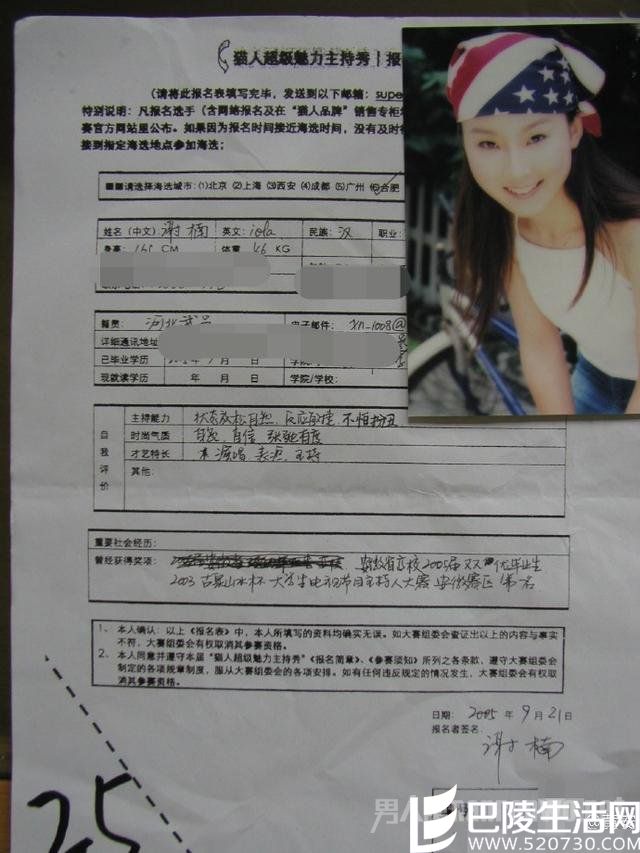 猫人超级魅力主持秀 报
(请将此报名表填写完毕，发送到以下邮箱：supe
特别说明：凡报名选手（含网络报名及在“猫人品牌”销售专柜
赛官方网站里公布。如果因为报名时间接近海选时间，没有及时
接到指定海选地点参加海选；
请选择海选城市：⑴北京 ⑵上海 ⑶西安 ⑷成都 ⑸广州 ⑹合肥
姓名（中文） 谢楠 英文： iola 民族： 汉 职业：
身高： 165 CM 体重 46 KG
籍贯： 河北 电子邮件： xn-1008@
详细通讯地址
已毕业学历 年 月 日
现就读学历 年 月 日 学院/学校：
自我评价
主持能力 状态放松自然、反应敏捷、不怕扮丑
时尚气质 自信、张驰有度
才艺特长 演唱 表演 主持
其他：
重要社会经历：
曾经获得奖项： 安徽省高校2005届双优毕业生
2003 古泉山水杯 大学生电视节目主持人大赛 安徽赛区 第一名
1、本人确认：以上《报名表》中，本人所填写的资料均确实无误。如大赛组委会查证出以上的内容与事实
不符，大赛组委会有权取消其参赛资格。
2、本人同意并遵守本届“猫人超级魅力主持秀”《报名简章》、《参赛须知》所列之各条款，遵守大赛组委会
制定的各项规章制度，服从大赛组委会的各项安排。如有任何违反规定的情况发生，大赛组委会有权取
消其参赛资格。
日期： 2005 年 9 月 21 日
报名者签名：
谢楠
25
男人
巴陵生活网
www.520730.com